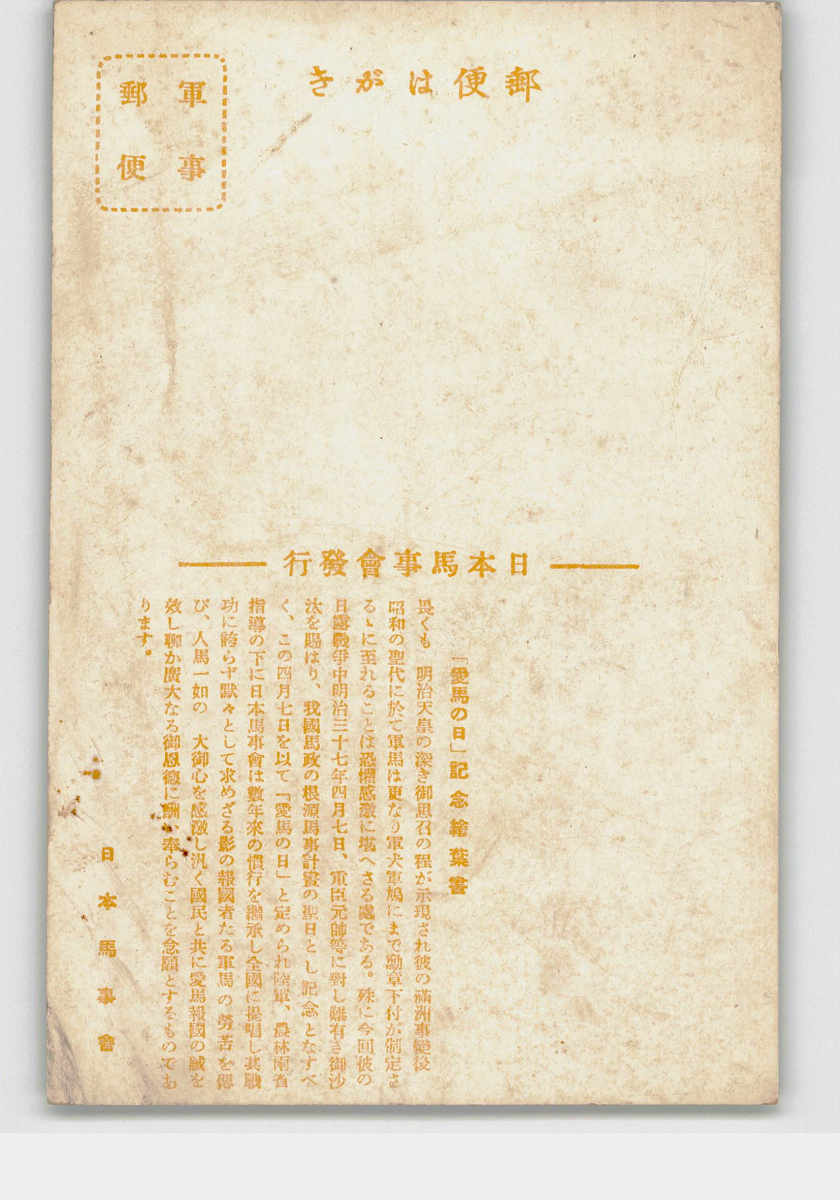 郵便はがき
軍事
郵便
日本馬事會發行
「愛馬の日」記念繪葉書
畏くも　明治天皇の深き御思召の程が示現され彼の滿洲事變後
昭和の聖代に於て軍馬は更なり軍犬軍鳩にまで勳章下付が制定さ
るゝに至れることは恐懼感激に堪へざる處である。殊に今回彼の
日露戰爭中明治三十七年四月七日、重臣元帥等に對し難有き御沙
汰を賜はり、我國馬政の根源馬事計畫の聖日とし記念となすべ
く、この四月七日を以て「愛馬の日」と定められ陸軍、農林兩省
指導の下に日本馬事會は數年來の慣行を繼承し全國に提唱し其戰
功に誇らず默々として求めざる影の報國者たる軍馬の勞苦を偲
び、人馬一如の　大御心を感激し汎く國民と共に愛馬報國の誠を
效し聊か廣大なる御恩德に酬い奉らむことを念願とするものであ
ります。
日本馬事會